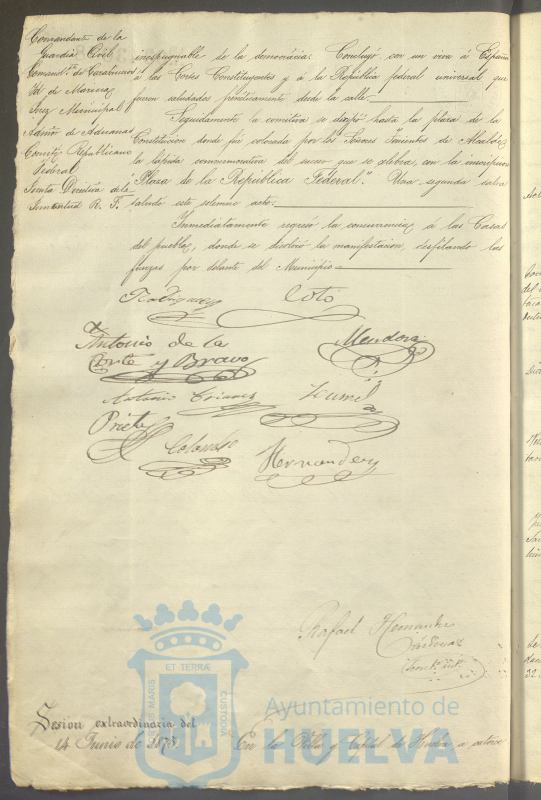 Comandante de la
Guardia Civil
Comand.te de Carabineros
Id de Marina
Juez Municipal
Admor de Aduanas
Comité Republicano
Federal
Junta Directiva de la
Juventud R. F.
inexpugnable de la democracia. Concluyó con un viva á España
á las Cortes Constituyentes y á la República federal universal que
fueron saludados frenéticamente desde la calle.
Seguidamente la comitiva se dirigió hasta la plaza de la
Constitucion donde fué colocada por los Señores Tenientes de Alcalde,
la lápida conmemorativa del suceso que se celebra, con la inscripcion
"Plaza de la República Federal". Una segunda salva
saludó este solemne acto.
Inmediatamente regresó la concurrencia á las Casas
del pueblo, donde se disolvió la manifestacion, desfilando las
fuerzas por delante del Municipio.
Rodriguez Coto
Antonio de la
Corte y Bravo Mendoza
Antonio
Prieto
Hernandez
Rafael Hernandez
ET TERRÆ
MARIS
CUSTODIA
Ayuntamiento de
HUELVA
Sesion extraordinaria del
14 Junio de 1873.
En la Villa y Capital de Huelva, a catorce